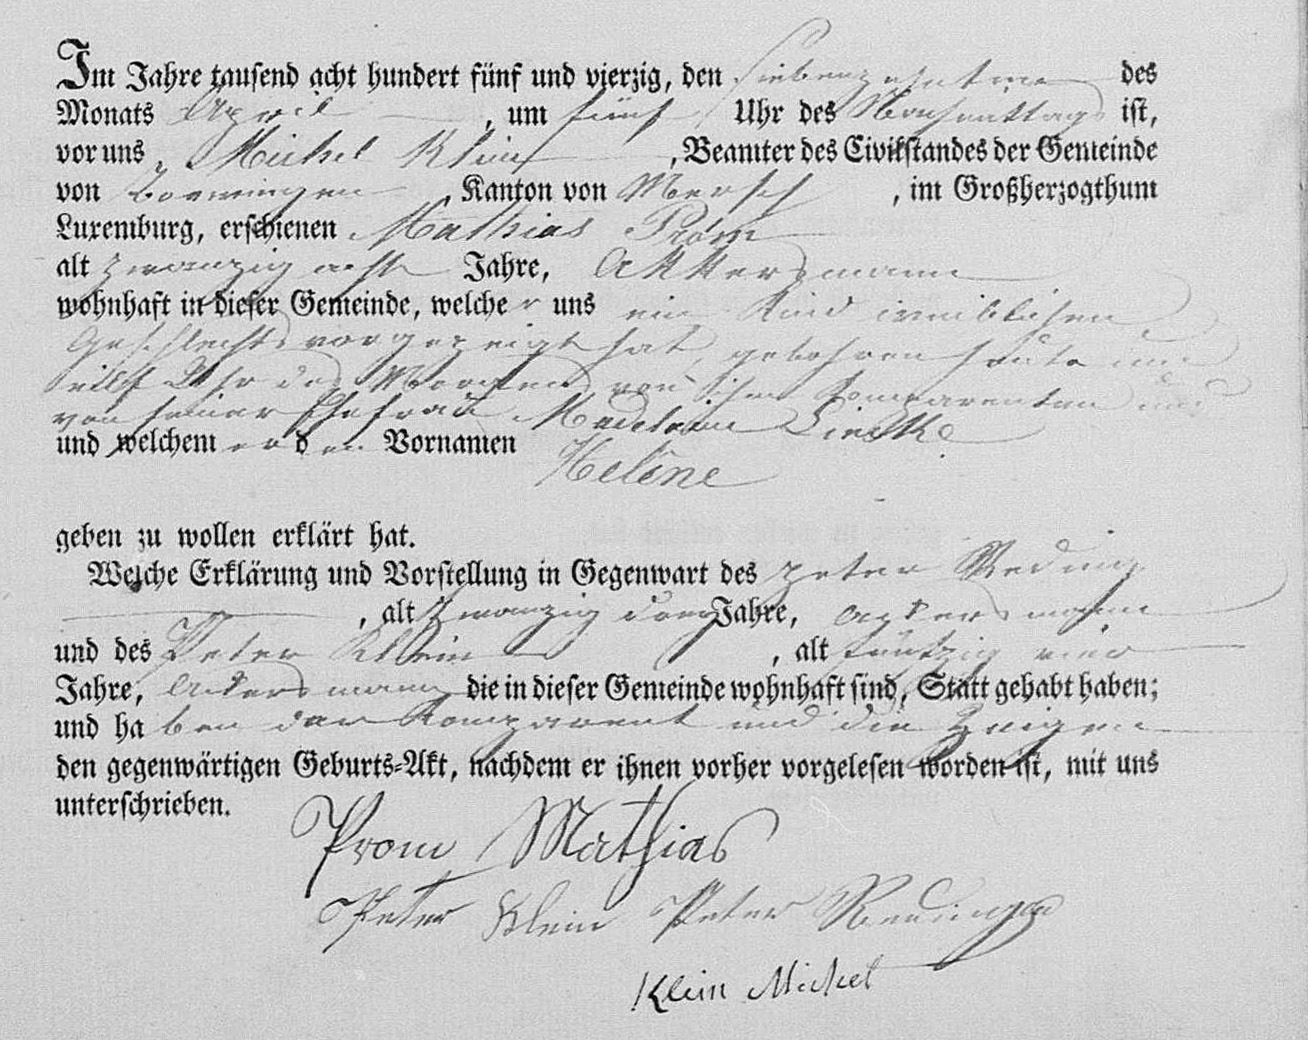 Im Jahre tausend acht hundert fünf und vierzig, den siebenzehnten des
Monats April, um fünf Uhr des Nachmittags ist,
vor uns, Michel Klein, Beamter des Civilstandes der Gemeinde
von, Kanton von Mersch, im Großherzogthum
Luxemburg, erschienen Mathias Prom
alt zwanzig acht Jahre, Akkersmann
wohnhaft in dieser Gemeinde, welcher uns ein Kind weiblichen
Geschlechts vorgezeigt hat, gebohren heute um
eilf Uhr des Morgens von ihm Komparenten und
von seiner Ehefrau Madelaine
und welchem er den Vornamen
Helène
geben zu wollen erklärt hat.
Welche Erklärung und Vorstellung in Gegenwart des Peter Reding
, alt zwanzig drey Jahre, ackersmann
und des Peter Klein, alt fünfzig
Jahre, Ackersmann die in dieser Gemeinde wohnhaft sind, Statt gehabt haben;
und haben der Komparent und die Zeugen
den gegenwärtigen Geburts-Akt, nachdem er ihnen vorher vorgelesen worden ist, mit uns
unterschrieben.
Prom Mathias
Peter Klein Peter Reding
Klein Michel